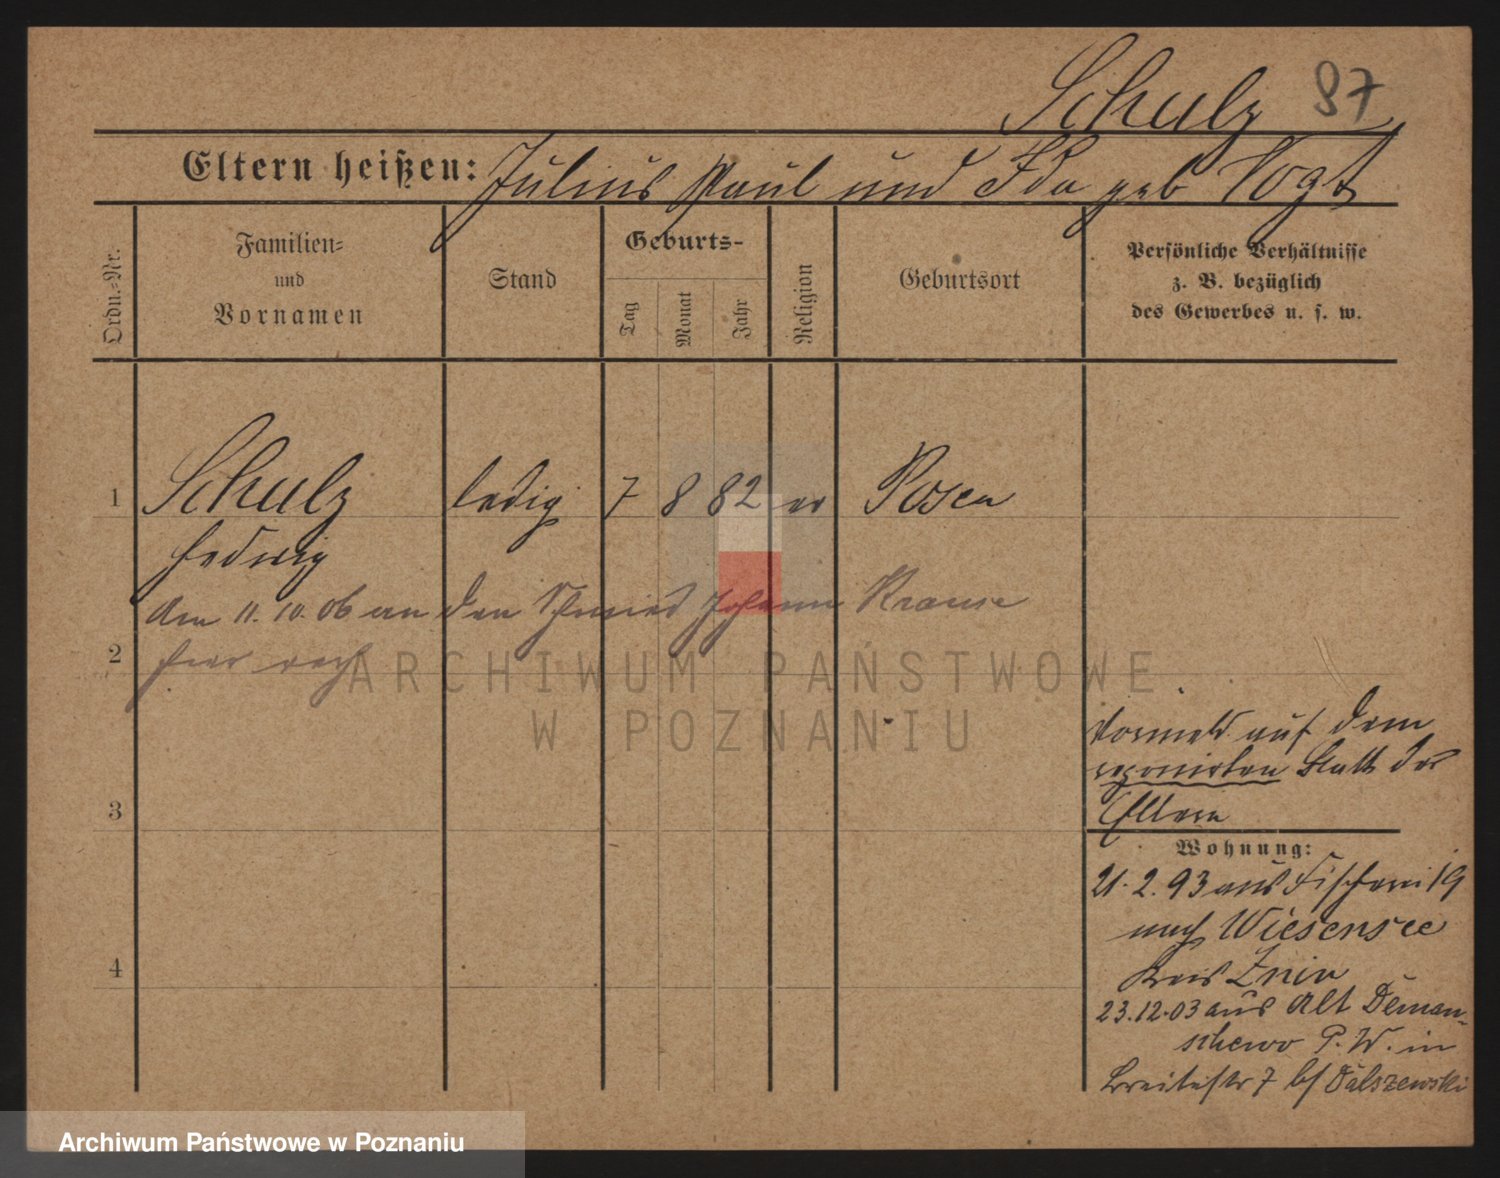 Schulz 87
Eltern heißen: Julius Paul und Ida geb Vogt
Ordn.=Nr.
Familien=
und
Vornamen
Stand
Geburts-
Tag
Monat
Jahr
Religion
Geburtsort
Persönliche Verhältnisse
z. B. bezüglich
des Gewerbes u. s. w.
1 Schulz ledig 7 8 82 ev Posen
Hedwig
Am 11. 10. 06 an den Schmied Johann Krause
2 hier verh
ARCHIWUM PAŃSTWOWE
W POZNANIU
Vormeld auf dem
reponirten Blatt der
3 Eltern
Wohnung:
21. 2. 93 aus Fischerei 19
nach Wiesensee
4 Kreis Znin
23.12.03 aus Alt Deman-
schewo P. W. in
Breitestr 7 b/ Dalszewski
Archiwum Państwowe w Poznaniu